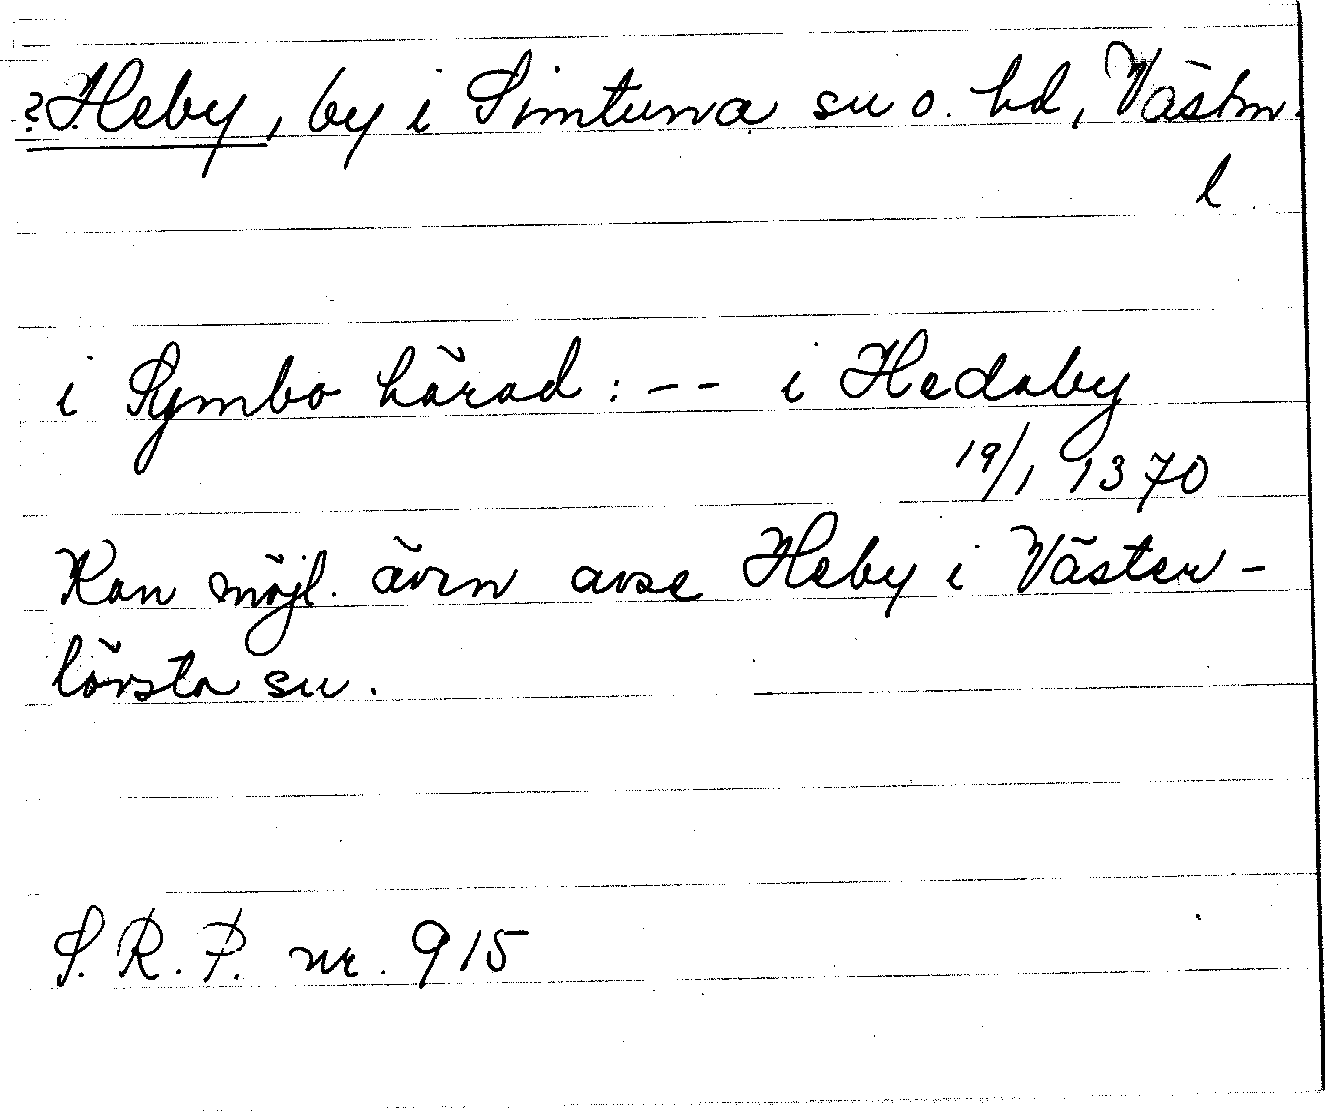 ?Heby, by i Simtuna su o. hd, Västm.
l.
i Symbo härad: -- i Hedaby
19/1 1370
Kan möjl. även avse Heby i Väster-
lövsta su.
S.R.P. nr. 915